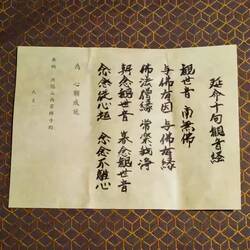 延命十句觀音経
觀世音 南無佛
与佛有因 与佛有縁
佛法僧縁 常楽我浄
朝念觀世音 暮念觀世音
念念従心起 念念不離心
為 心願成就